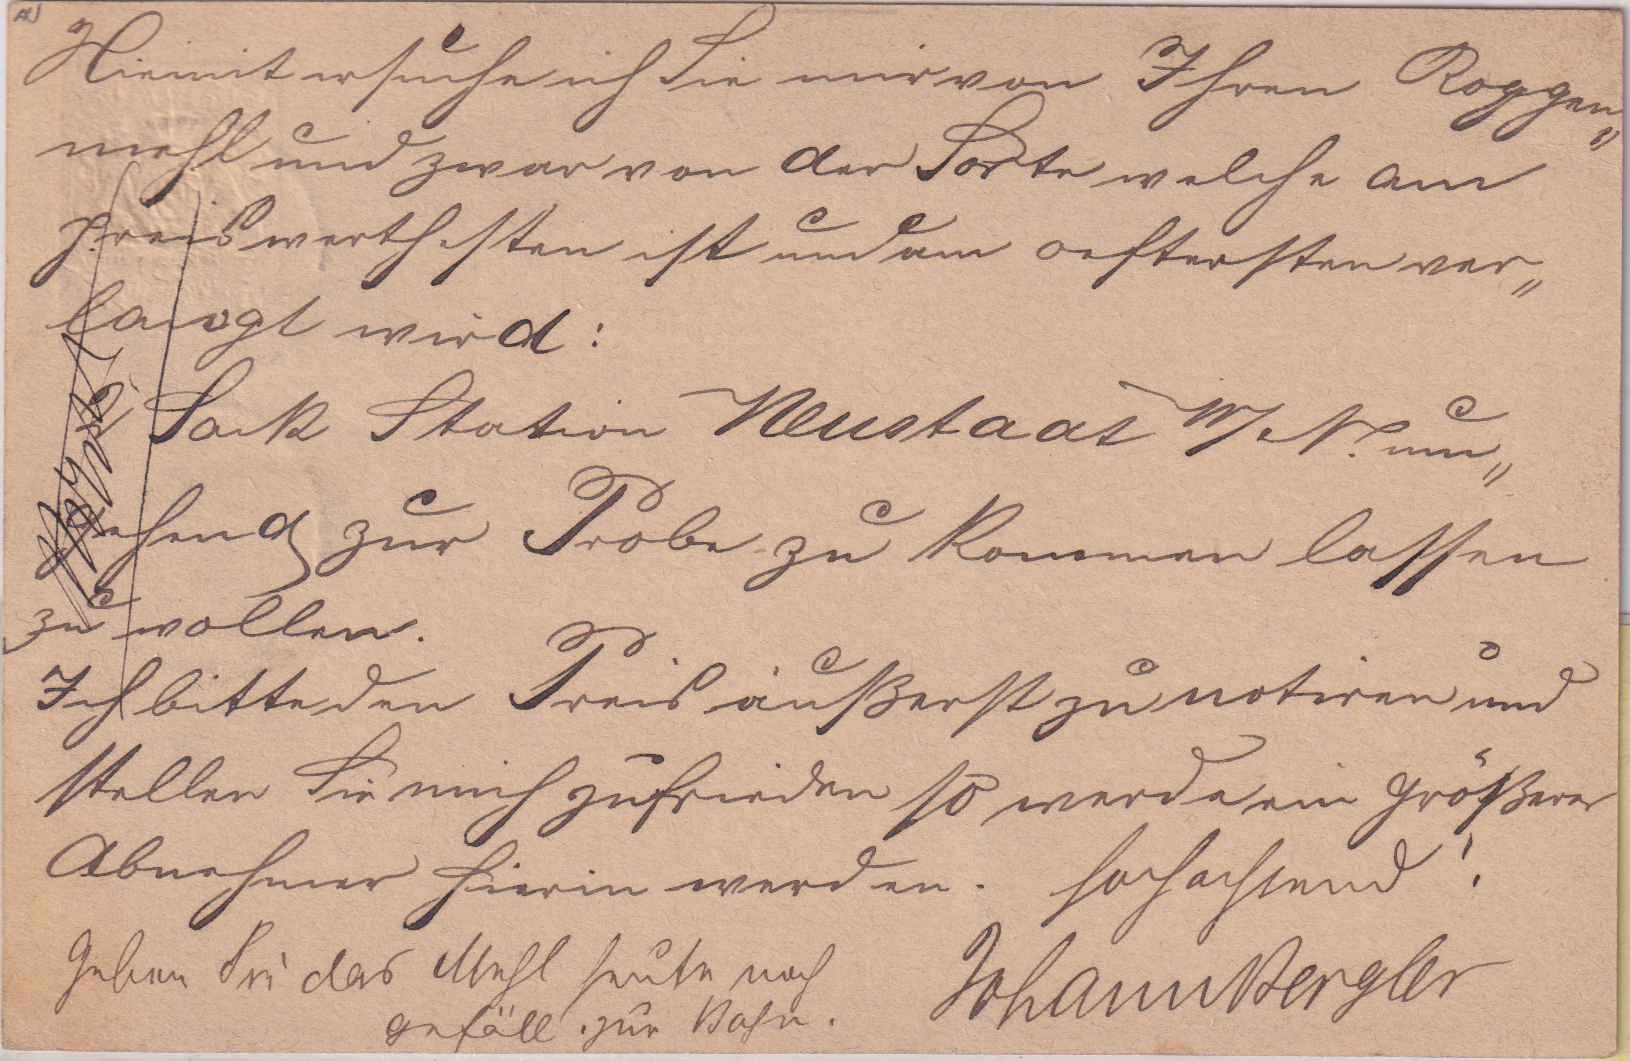 Hiemit ersuche ich Sie mir von Ihren Roggen„
mehl und zwar von der Sorte welche am
preiswerthesten ist und am oeftersten ver„
langt wird:
Sack Station Neustadt W/N. um„
gehend zur Probe zu kommen lassen
zu wollen.
Ich bitte den Preis äußerst zu notiren und
stellen Sie mich zufrieden so werde ein größerer
Abnehmer hierin werden. Hochachtend!
Geben Sie das Mehl heute noch
gefäll. zur Bahn.
Johann Bergler